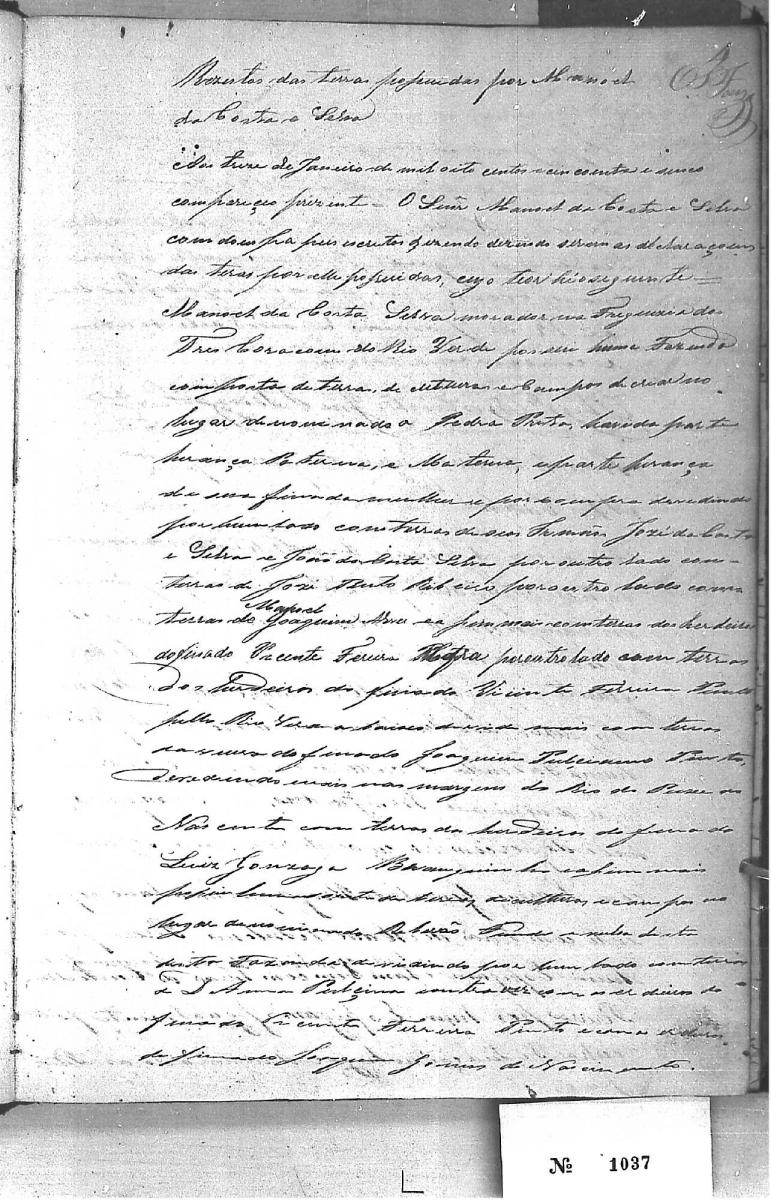 Rezistos das terras posuidas por Manoel
da Costa e Silva
Aos treze de Janeiro de mil oito centos e cincoenta e sinco
compareçeo prizente O Senr Manoel da Costa e Silva
com dous papeis escritos dizendo serem as declaraçoens
das teras por elle posuidas, cujo teor hé o seguinte
Manoel da Costa Silva morador na Freguezia dos
Tres Coracoens do Rio Verde possui huma Fazenda
composta de terra, de culturas e Campos de criar no
lugar denominado a Pedra Preta, havida parte
herança Paterna, e Materna, e parte herança
de sua finada mulher e por compra devedindo
por hum lado com terras de seos Irmãos Jozé da Costa
e Silva e João da Costa Silva por outro lado com
terras de Jozé Ribeiro por outro lado com
terras de Manoel Joaquim Alves e a sim mais com terras dos herdeiros
do finado Vicente Fereira por outro lado com terras
dos herdeiros do finado Vicente Ferreira Pinto
pello Rio Verde a baixo devide mais com terras
da viuva do finado Joaquim Pinto,
devedindo mais nas margens do Rio do Peixe ao
Nascente com terras dos herdeiros do finado
Luiz Gonzaga e asim mais
posui huma sorte de terras de culturas e campos no
lugar denominado Ribeirão Fundo e nesta
Fazenda devidindo por hum lado com terras
de D Anna com os erdeiros do
finado Vicente Ferreira Pinto e com erdeiros
do finado Joaquim Gomes do Nascimento.
Nº 1037